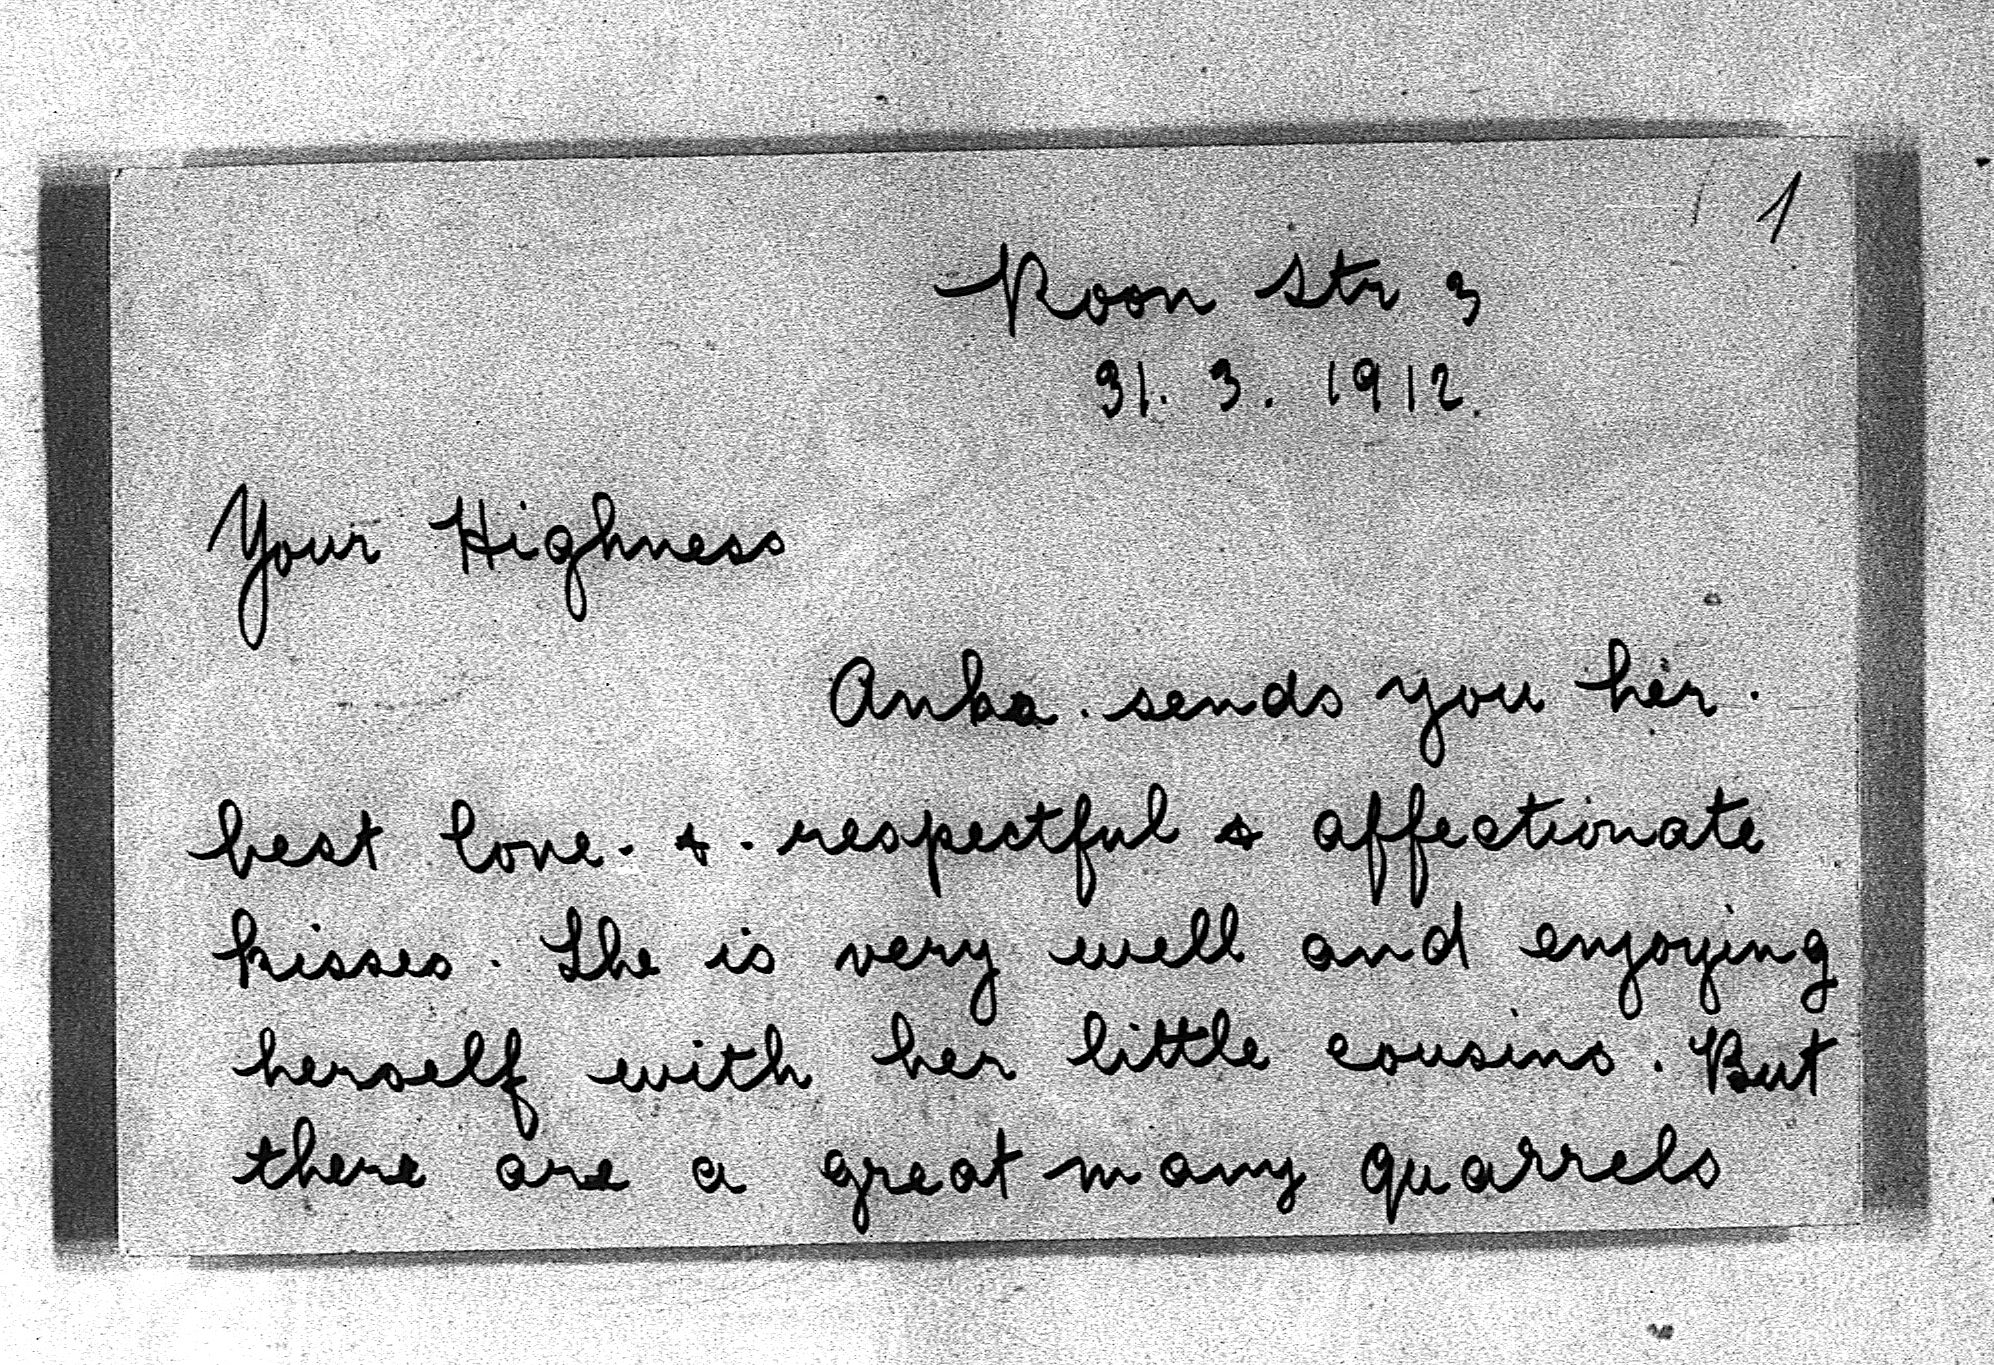 1
Roon Str 3
31. 3. 1912.
Your Highness
Anka. sends you her.
best love. & . respectful & affectionate
kisses. She is very well and enjoying
herself with her little cousins. But
there are a great many quarrels